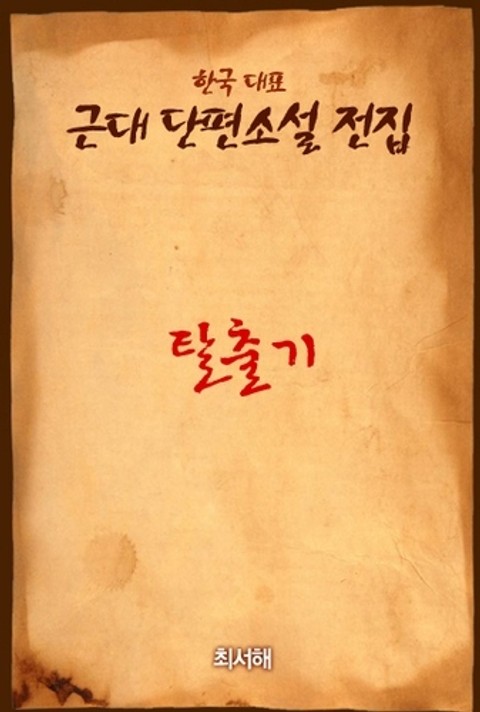 한국 대표
근대 단편소설 전집
탈출기
최서해